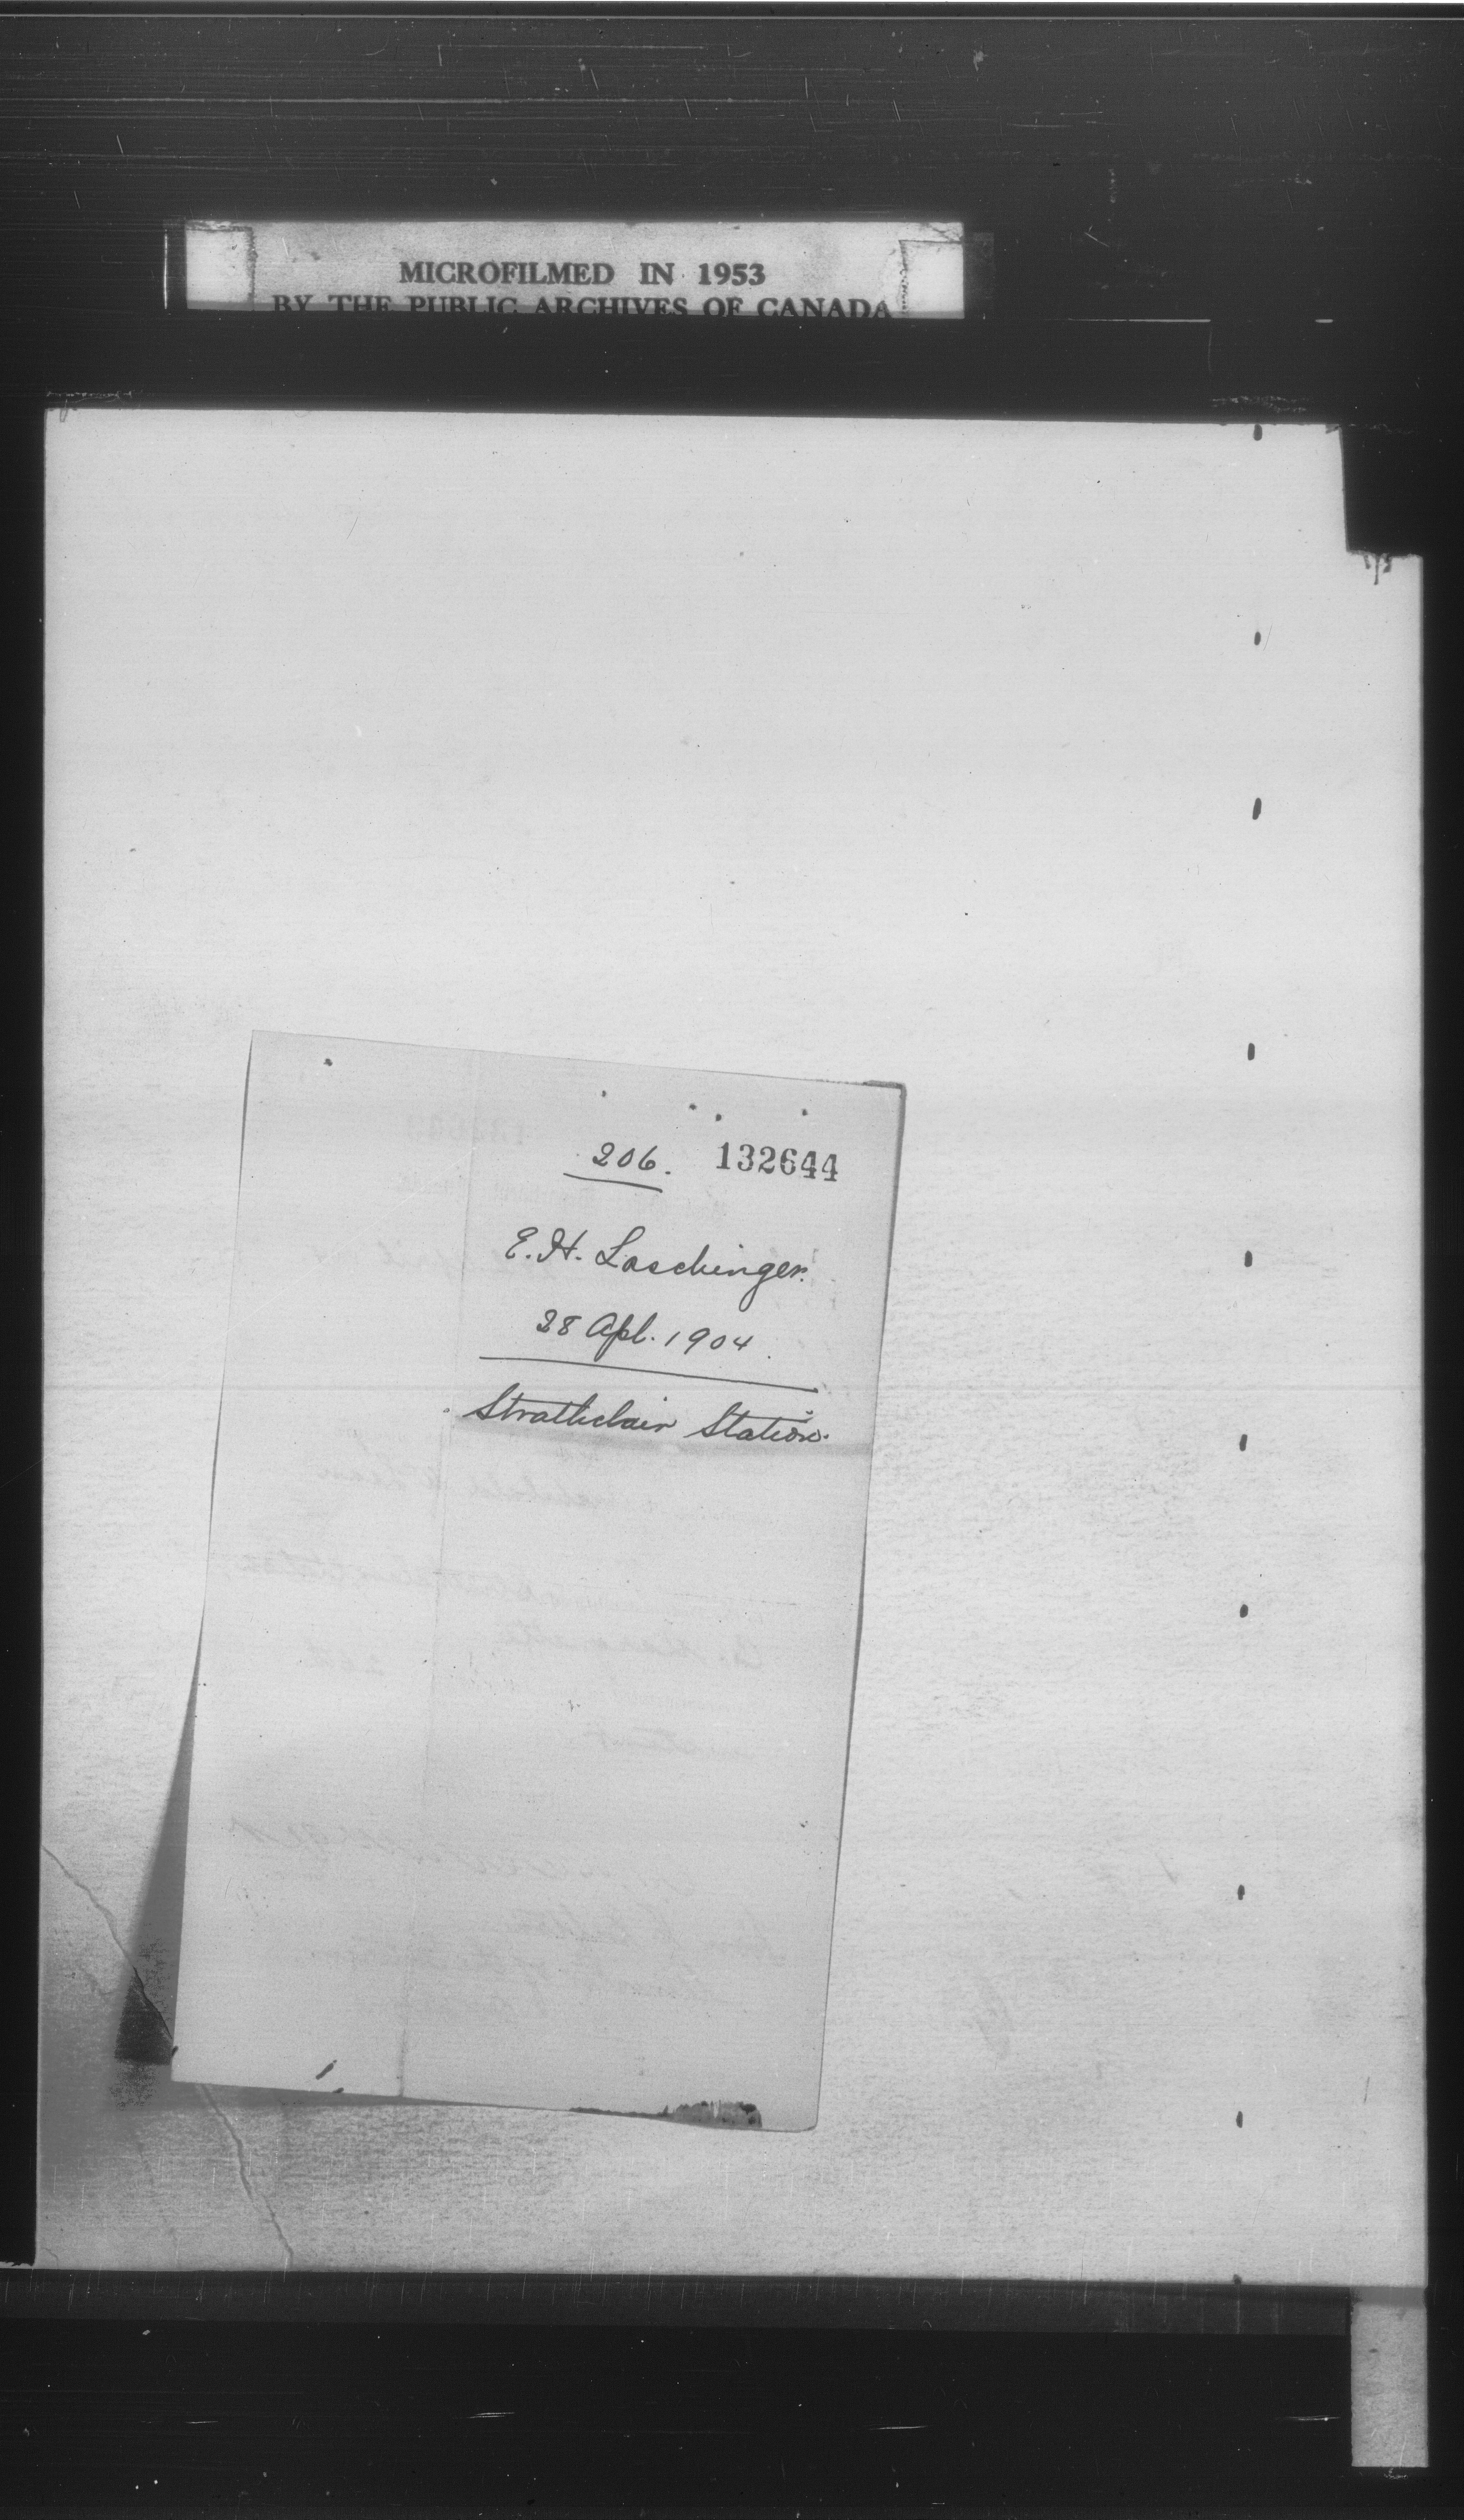 MICROFILMED IN 1953
BY THE PUBLIC ARCHIVES OF CANADA
206. 132644
E. H. Laschinger.
28 Apl. 1904.
Strathclair Station.